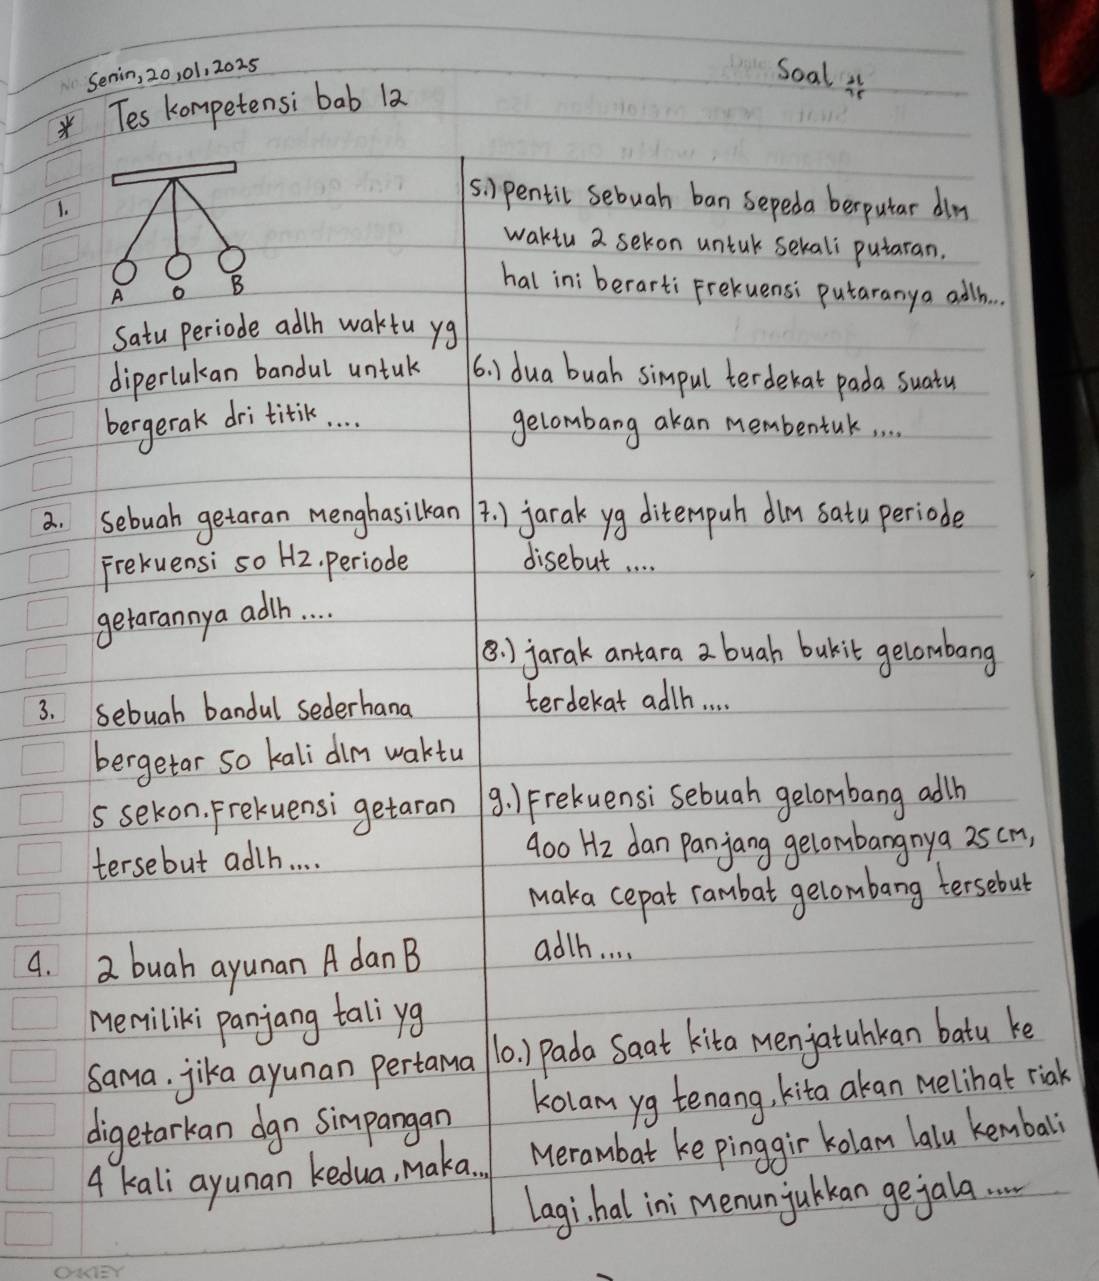 Senin, 20, 01, 2025
Soal
* Tes kompetensi bab 12
1.
A O B
Satu Periode adlh waktu yg
diperlukan bandul untuk
bergerak dri titik....
2. Sebuah getaran menghasilkan
Frekuensi 50 Hz. Periode
getarannya adlh....
3. Sebuah bandul sederhana
bergetar 50 kali dlm waktu
5 sekon. Frekuensi getaran
tersebut adlh....
4. 2 buah ayunan A dan B
Memiliki panjang tali yg
Sama. jika ayunan pertama
digetarkan dgn Simpangan
4 kali ayunan kedua, Maka...
5.) pentil Sebuah ban Sepeda berputar dlm
waktu 2 sekon untuk sekali putaran.
hal ini berarti Frekuensi putaranya adlh...
6.) dua buah simpul terdekat pada suatu
gelombang akan membentuk....
7.) jarak yg ditempuh dlm satu periode
disebut....
8.) jarak antara 2 buah bukit gelombang
terdekat adlh....
9.) Frekuensi Sebuah gelombang adlh
400 Hz dan panjang gelombangnya 25 cm,
Maka cepat rambat gelombang tersebut
adlh....
10.) Pada Saat kita Menjatuhkan batu ke
kolam yg tenang, kita akan Melihat riak
Merambat ke pinggir kolam lalu kembali
lagi. hal ini Menunjukkan gejala.....
OKEY